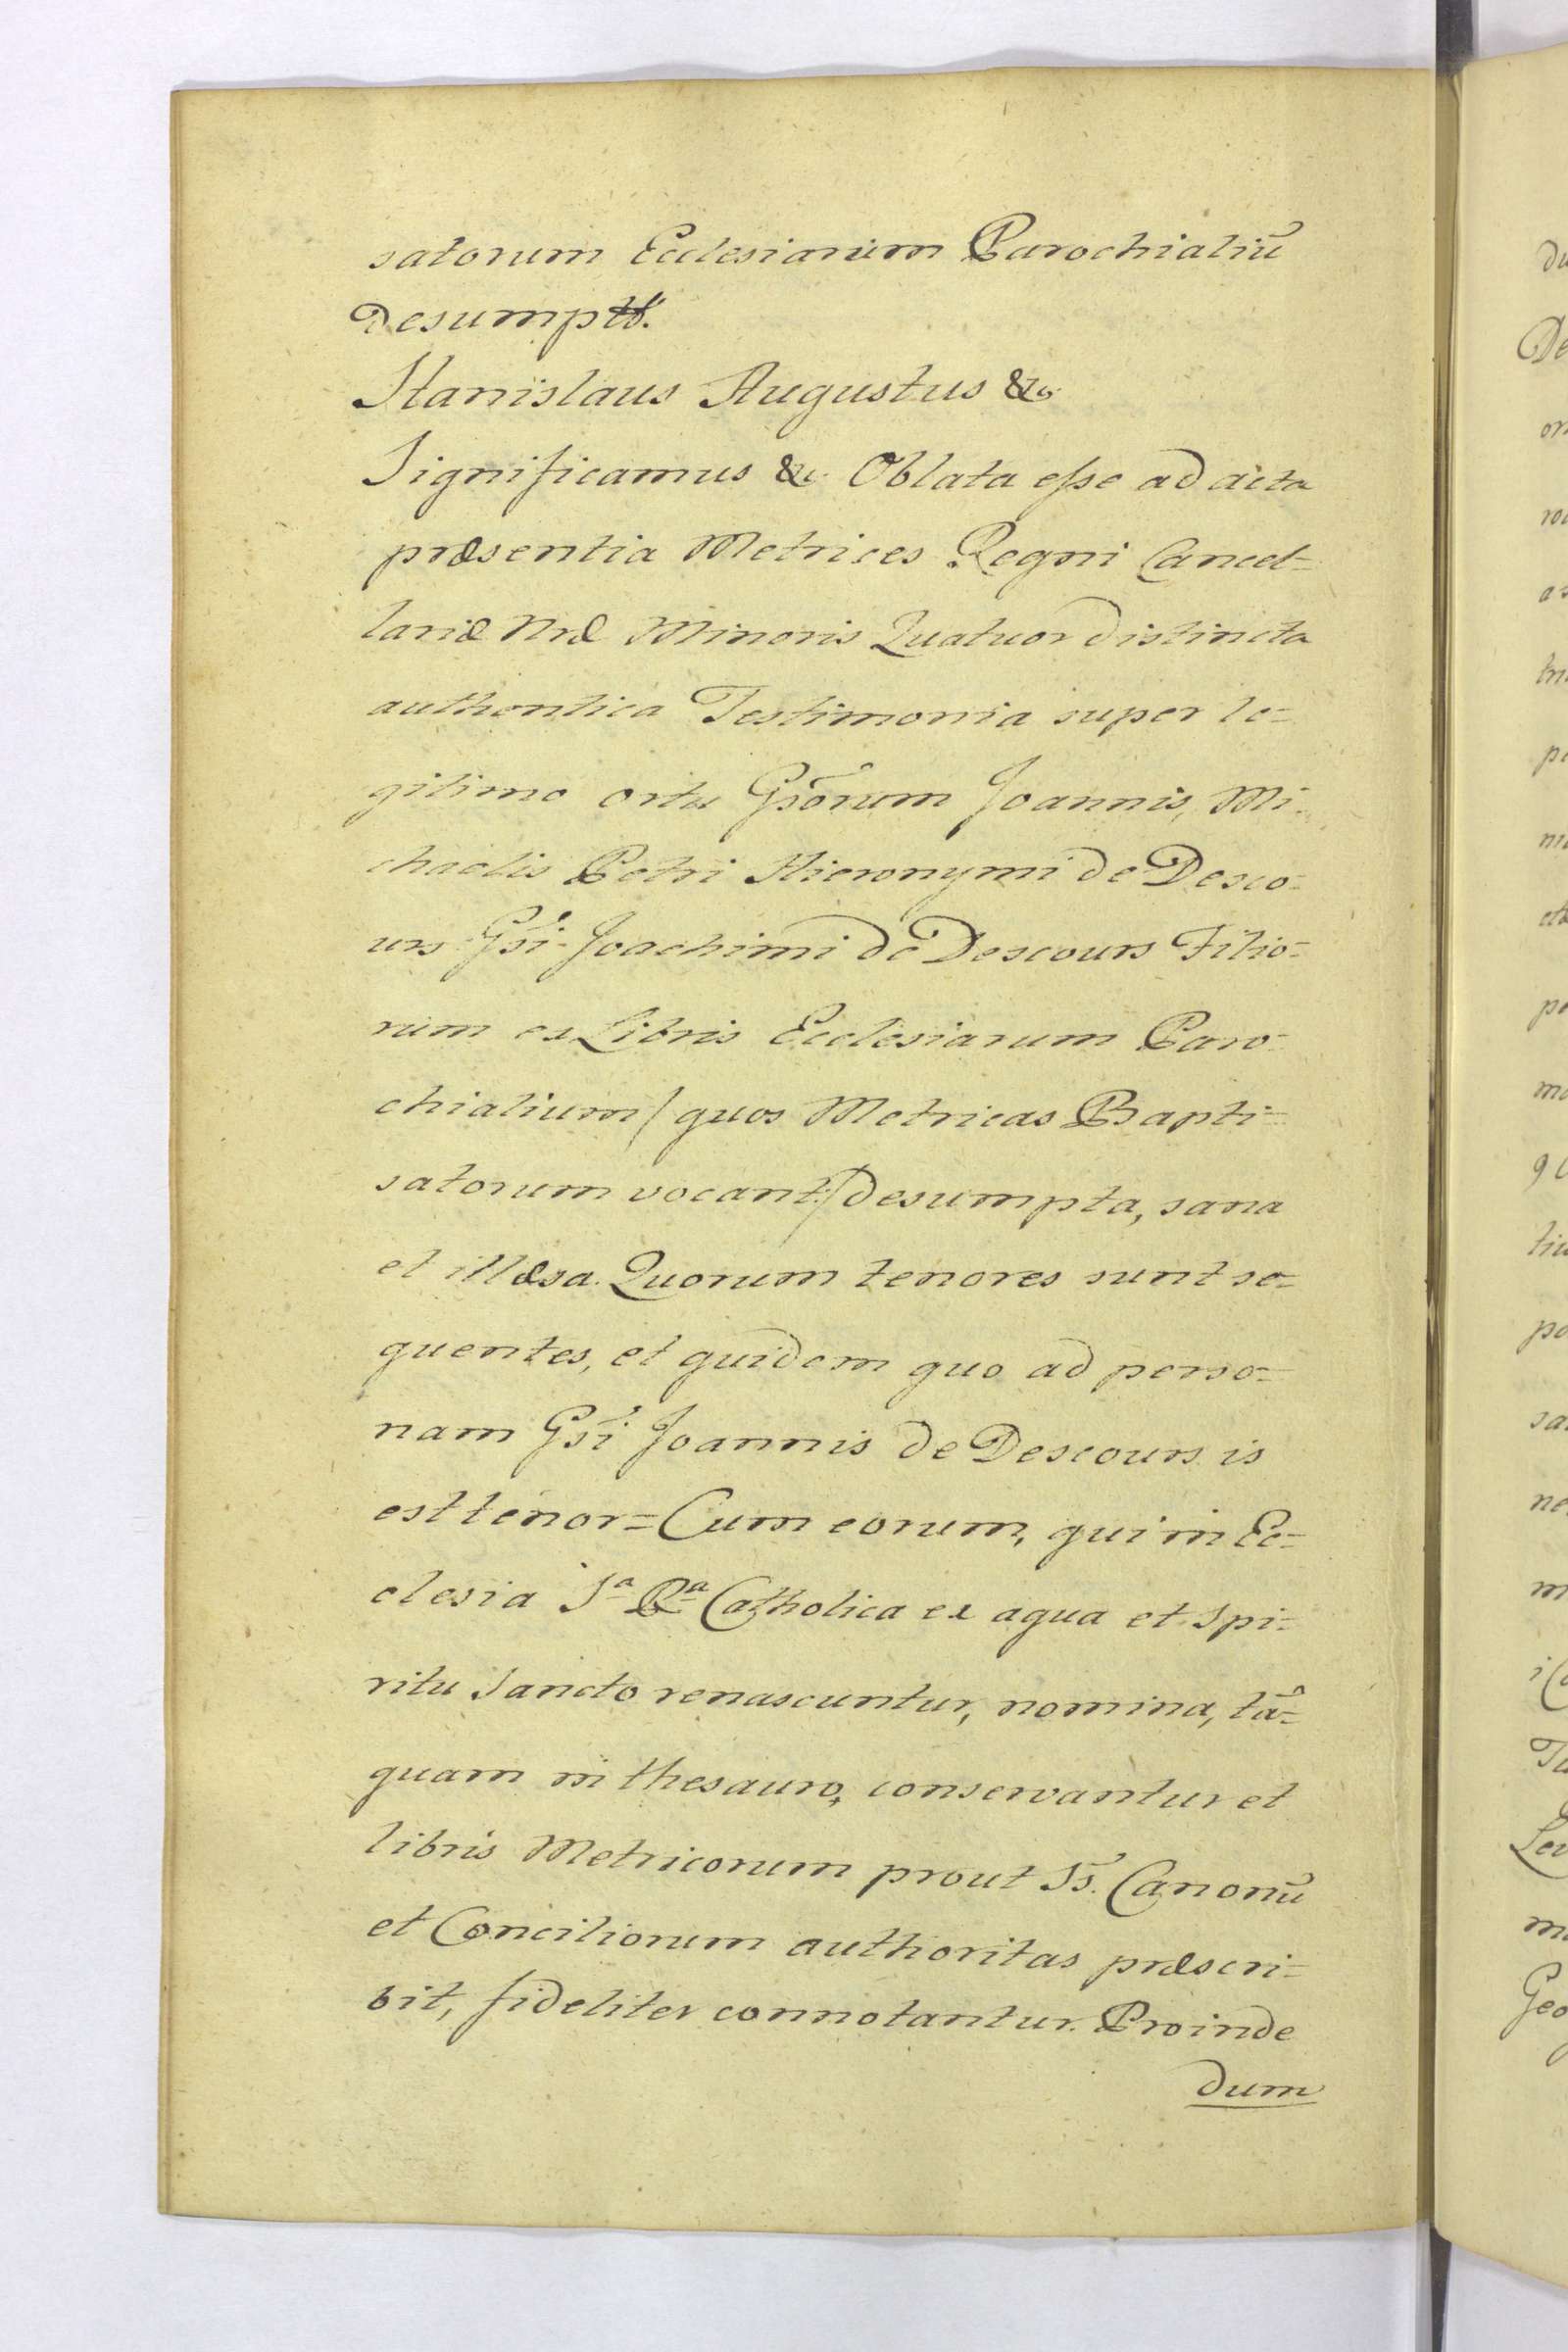 satorum Ecclesiarum Parochialiũ
Desumpts.
Stanislaus Augustus &c
Significamus &c Oblata esse ad acta
præsentia Metrices Regni Cancel=
lariæ Nræ Minoris Quatuor distincta
authentica Testimonia super le=
gitimo ortu Gsõrum Joannis, Mi=
chaelis Petri Hieronymi de Desco=
urs Gsi Joachimi de Descours Filio=
rum ex Libris Ecclesiarum Paro=
chialium / quos Metricas Bapti=
satorum vocant / desumpta, sana
et illæsa. Quorum tenores sunt se=
quentes, et quidem quo ad perso=
nam Gsi Joannis de Descours is
est tenor = Cum eorum, qui in Ec=
clesia Sª Rª Catholica ex aqua et Spi=
ritu Sancto renascuntur, nomina, tã=
quam in thesauro, conservantur et
libris Metricorum prout Ss. Canonũ
et Conciliorum authoritas præscri=
bit, fideliter connotantur. Proinde
dum